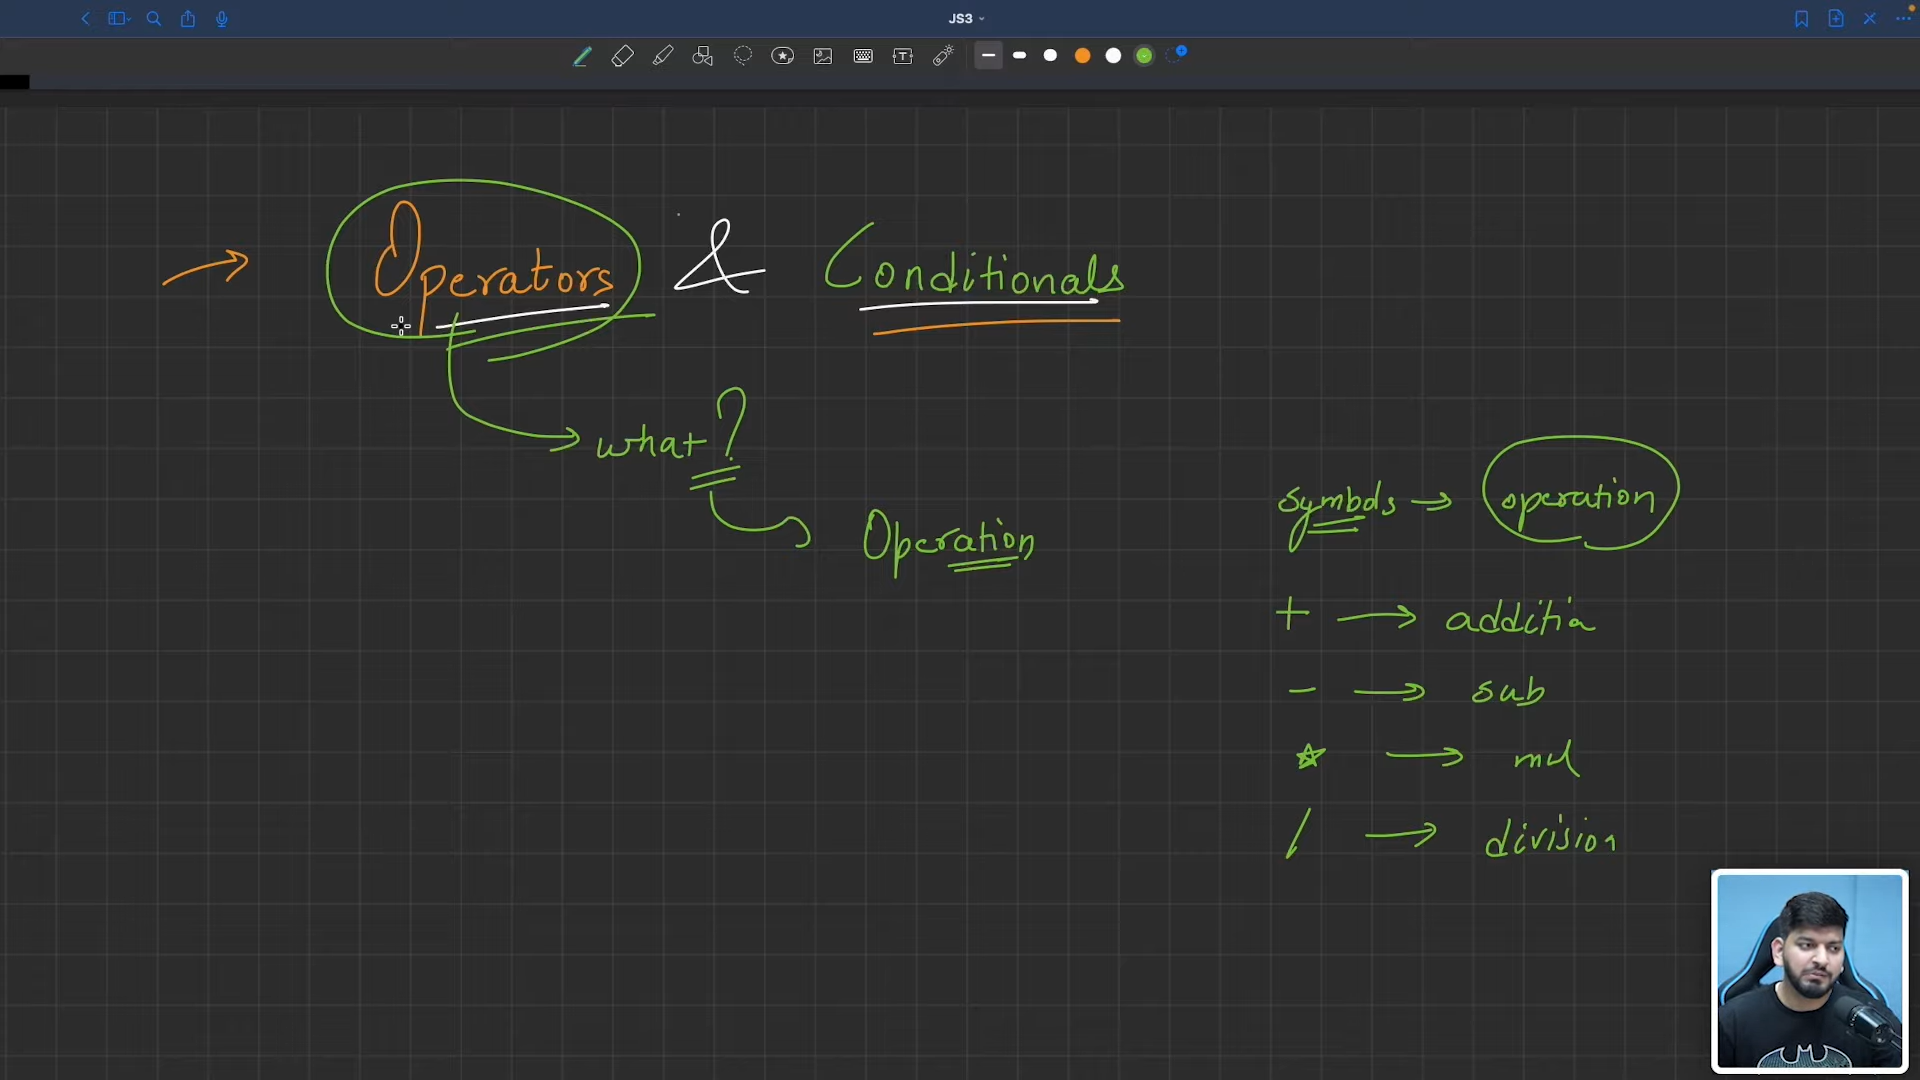 JS3
→ Operators & Conditionals
what?
Operation
symbols → operation
+ → additia
- → sub
* → mul
/ → division